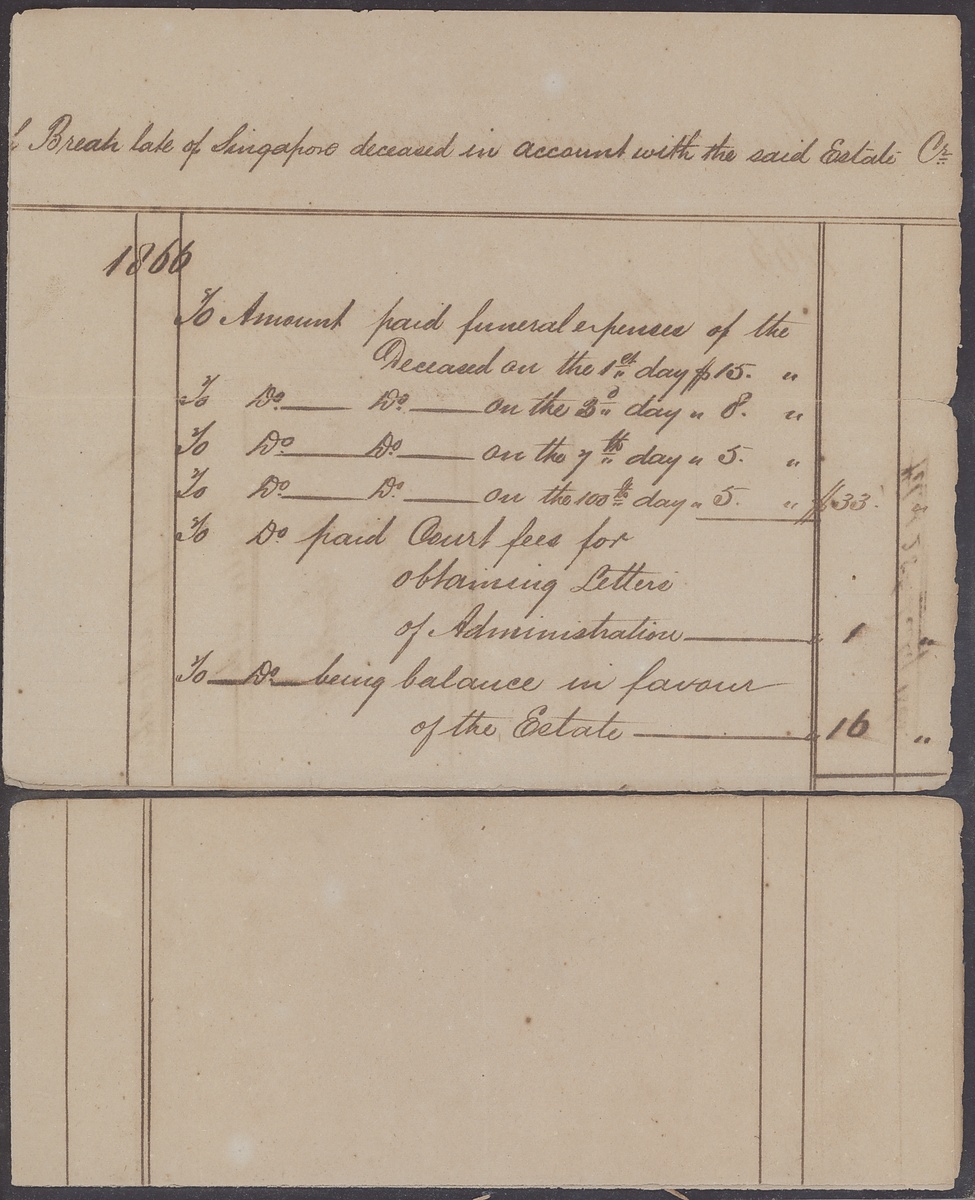 Breah late of Singapore deceased in account with the said Estate Cr
1866
To Amount paid funeral expenses of the
Deceased on the 1st day $ 15. "
To Do. Do. on the 3d day " 8. "
To Do. Do. on the 7th day " 5. "
To Do. Do. on the 100th day " 5. " $ 33.
To Do paid Court fees for
obtaining Letters
of Administration " 1 "
To Do being balance in favour
of the Estate " 16 "